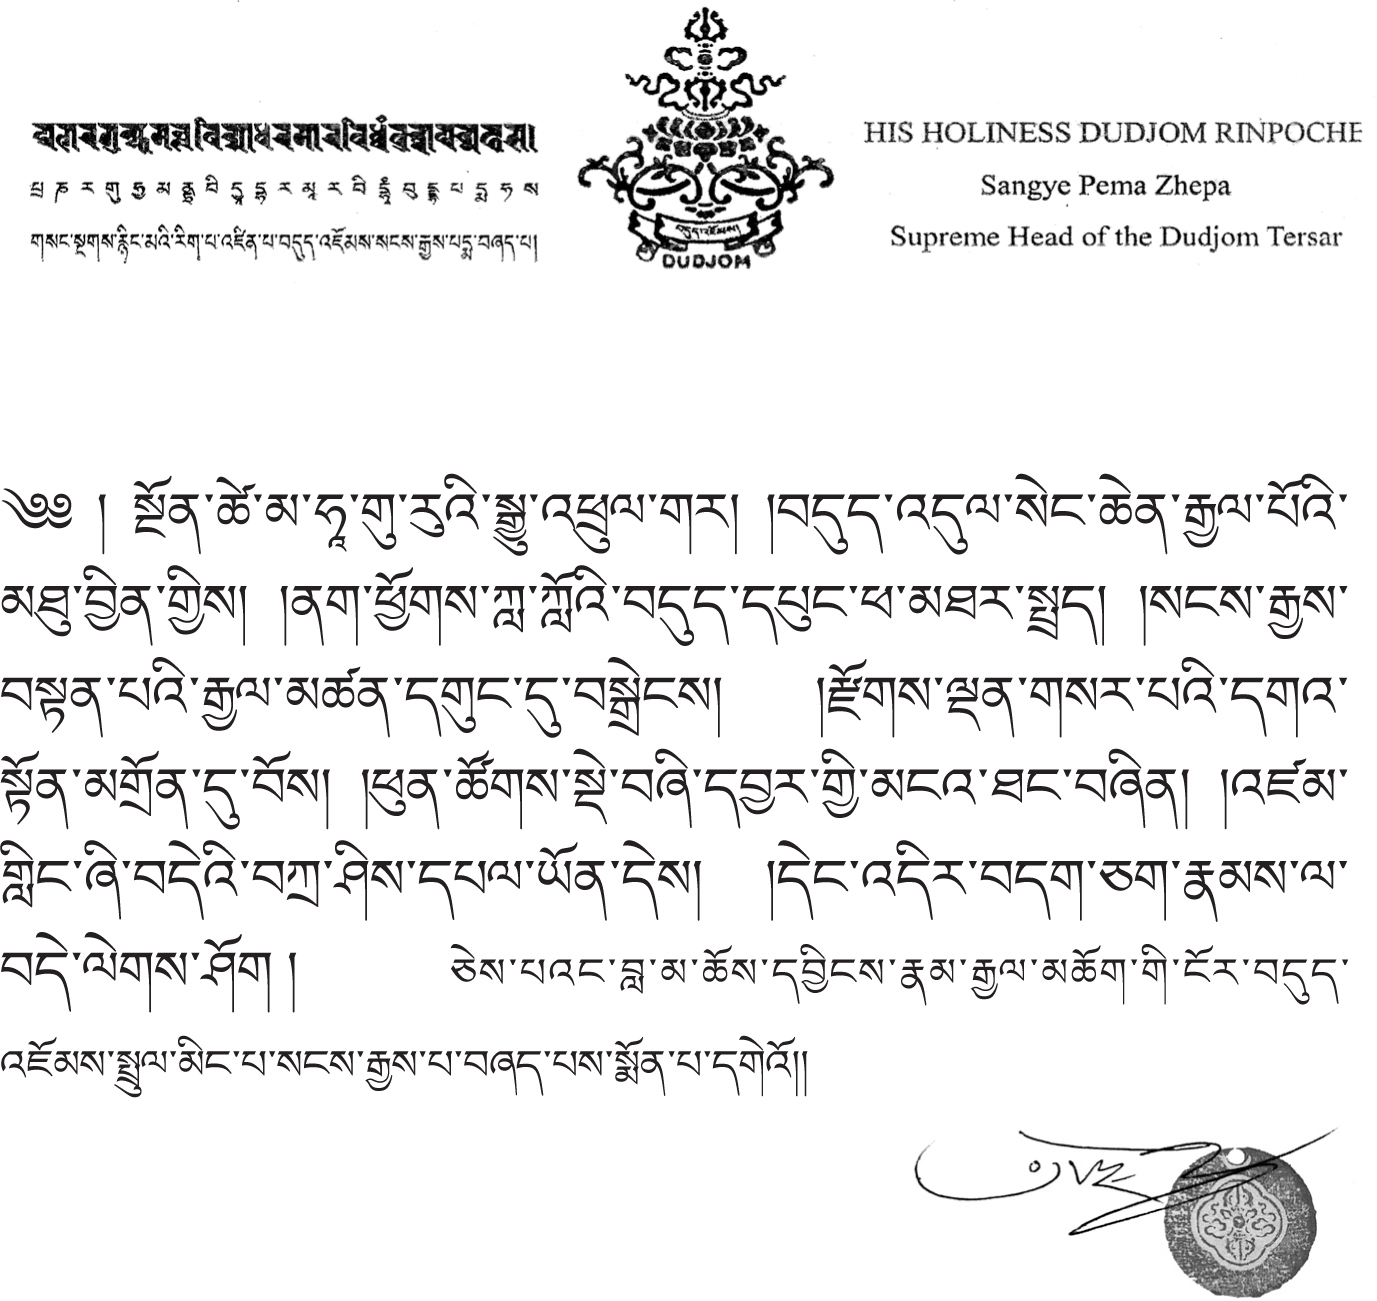 HIS HOLINESS DUDJOM RINPOCHE
Sangye Pema Zhepa
གསང་སྔགས་རྙིང་མའི་རིག་པ་འཛིན་པ་བདུད་འཇོམས་སངས་རྒྱས་པདྨ་བཞད་པ།
Supreme Head of the Dudjom Tersar
བདུད་འཇོམས།
DUDJOM
༄༅ །  སྔོན་ཚེ་མ་ཧཱ་གུ་རུའི་སྒྱུ་འཕྲུལ་གར། །བདུད་འདུལ་སེང་ཆེན་རྒྱལ་པོའི་
མཐུ་བྱིན་གྱིས། །ནག་ཕྱོགས་ཀླ་ཀློའི་བདུད་དཔུང་ཕ་མཐར་སྤྲད། །སངས་རྒྱས་
བསྟན་པའི་རྒྱལ་མཚན་དགུང་དུ་བསྒྲེངས། །རྫོགས་ལྡན་གསར་པའི་དགའ་
སྟོན་མགྲོན་དུ་བོས། །ཕུན་ཚོགས་སྡེ་བཞི་དབྱར་གྱི་མངའ་ཐང་བཞིན། །འཛམ་
གླིང་ཞི་བདེའི་བཀྲ་ཤིས་དཔལ་ཡོན་དེས། །དེང་འདིར་བདག་ཅག་རྣམས་ལ་
བདེ་ལེགས་ཤོག །  ཅེས་པའང་བླ་མ་ཆོས་དབྱིངས་རྣམ་རྒྱལ་མཆོག་གི་ངོར་བདུད་
འཇོམས་སྤྲུལ་མིང་པ་སངས་རྒྱས་པ་བཞད་པས་སྨོན་པ་དགེའོ།།